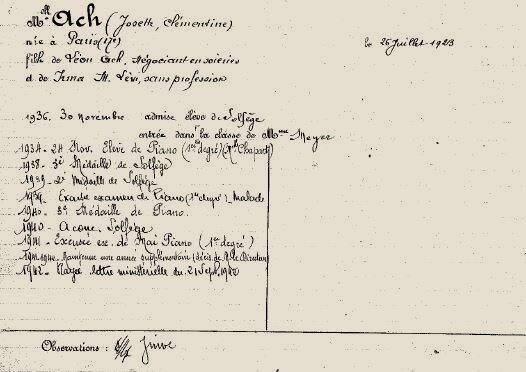 Mlle Ach (Josette, Clémentine)
née à Paris (17e) le 26 Juillet 1923
fille de Léon Ach, Négociant en soieries
et de Irma M. Lévi, sans profession
1936. 30 novembre admise élève de Solfège
entrée dans la classe de Mme Meyer
1937. 24 Nov. Elève de Piano (1er degré) (Mlle Chapart)
1938. 3e Médaille de Solfège
1939. 2e Médaille de Solfège
1939. Excusée examen de Piano (1er degré) Malade
1940. 3e Médaille de Piano.
1940. Solfège
1941. Excusée ex. de Mai Piano (1er degré)
1941. Maintenue une année supplémentaire (décis. de M. le Directeur)
1942. Rayée lettre ministérielle du 21 Sept. 1942
Observations : Juive